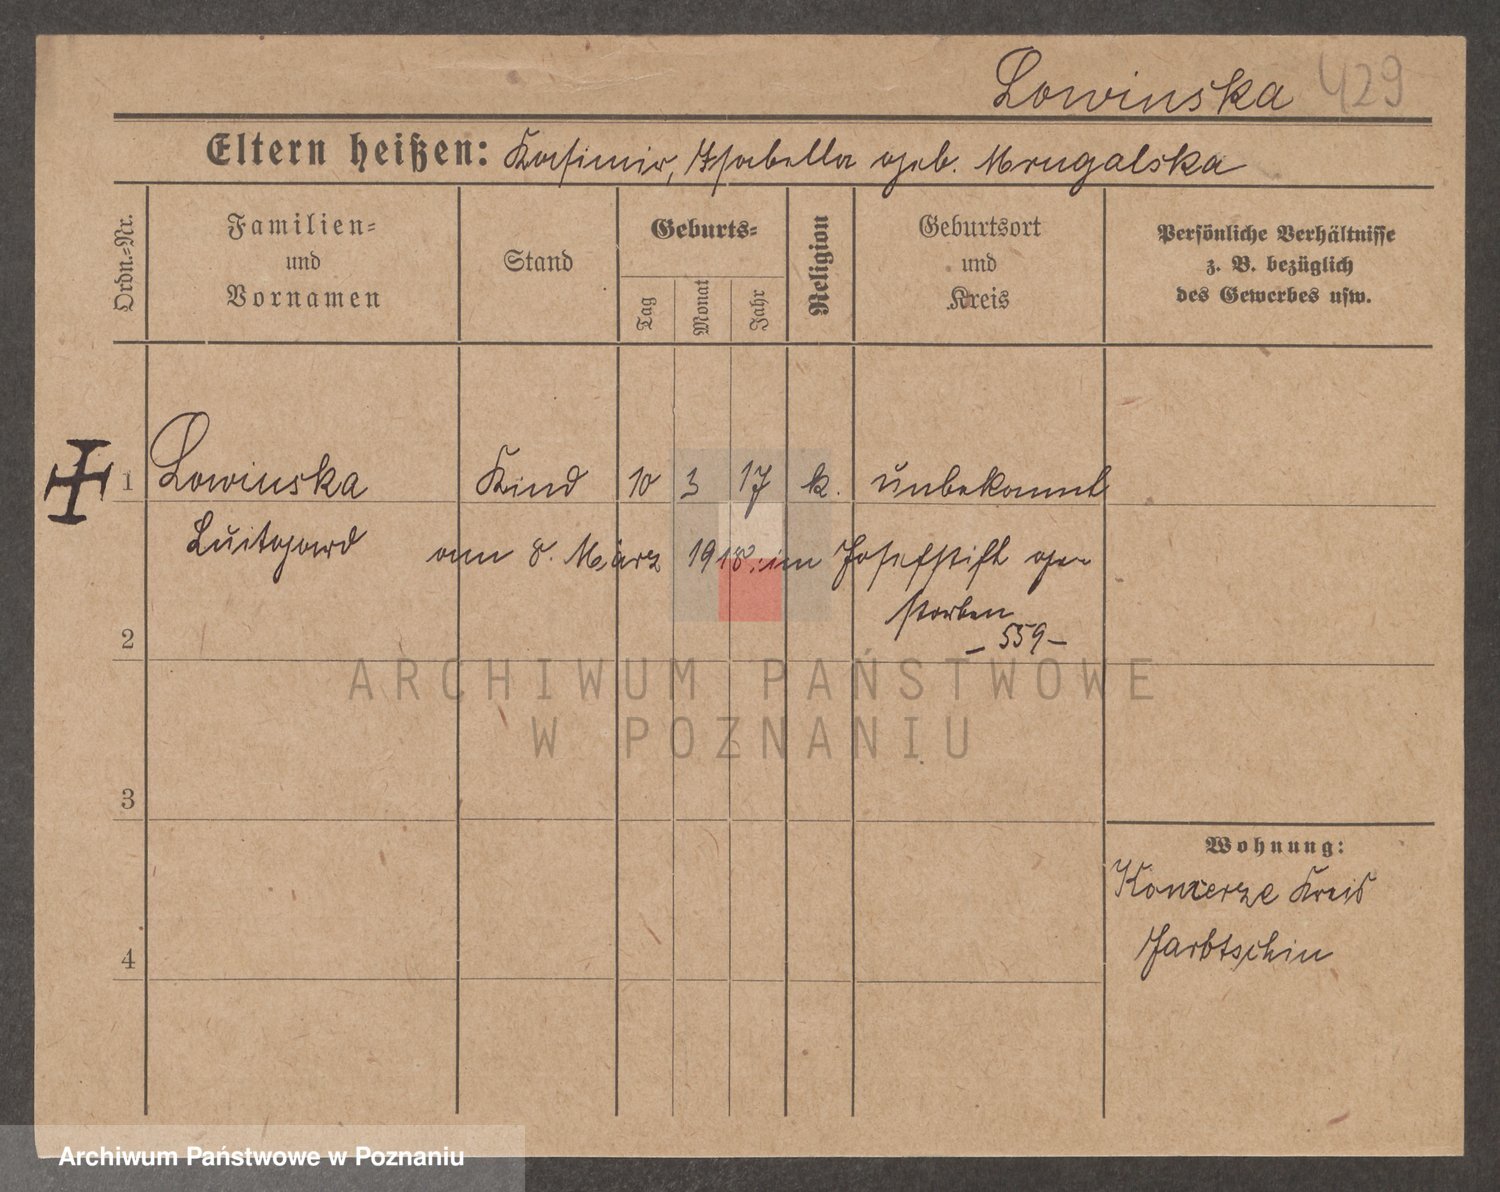 Lowinska 429
Eltern heißen: Kasimir, Isabella geb. Mrugalska
Ordn.-Nr.
Familien-
und
Vornamen
Stand
Geburts-
Tag
Monat
Jahr
Religion
Geburtsort
und
Kreis
Persönliche Verhältnisse
z. B. bezüglich
des Gewerbes usw.
1 Lowinska Kind 10 3 17 k. unbekannt
Luitgard am 8. März 1918 im Josefstift ge-
storben
- 559 -
2
ARCHIWUM PAŃSTWOWE
W POZNANIU
3
Wohnung:
Komerze Kreis
Jarotschin
4
Archiwum Państwowe w Poznaniu